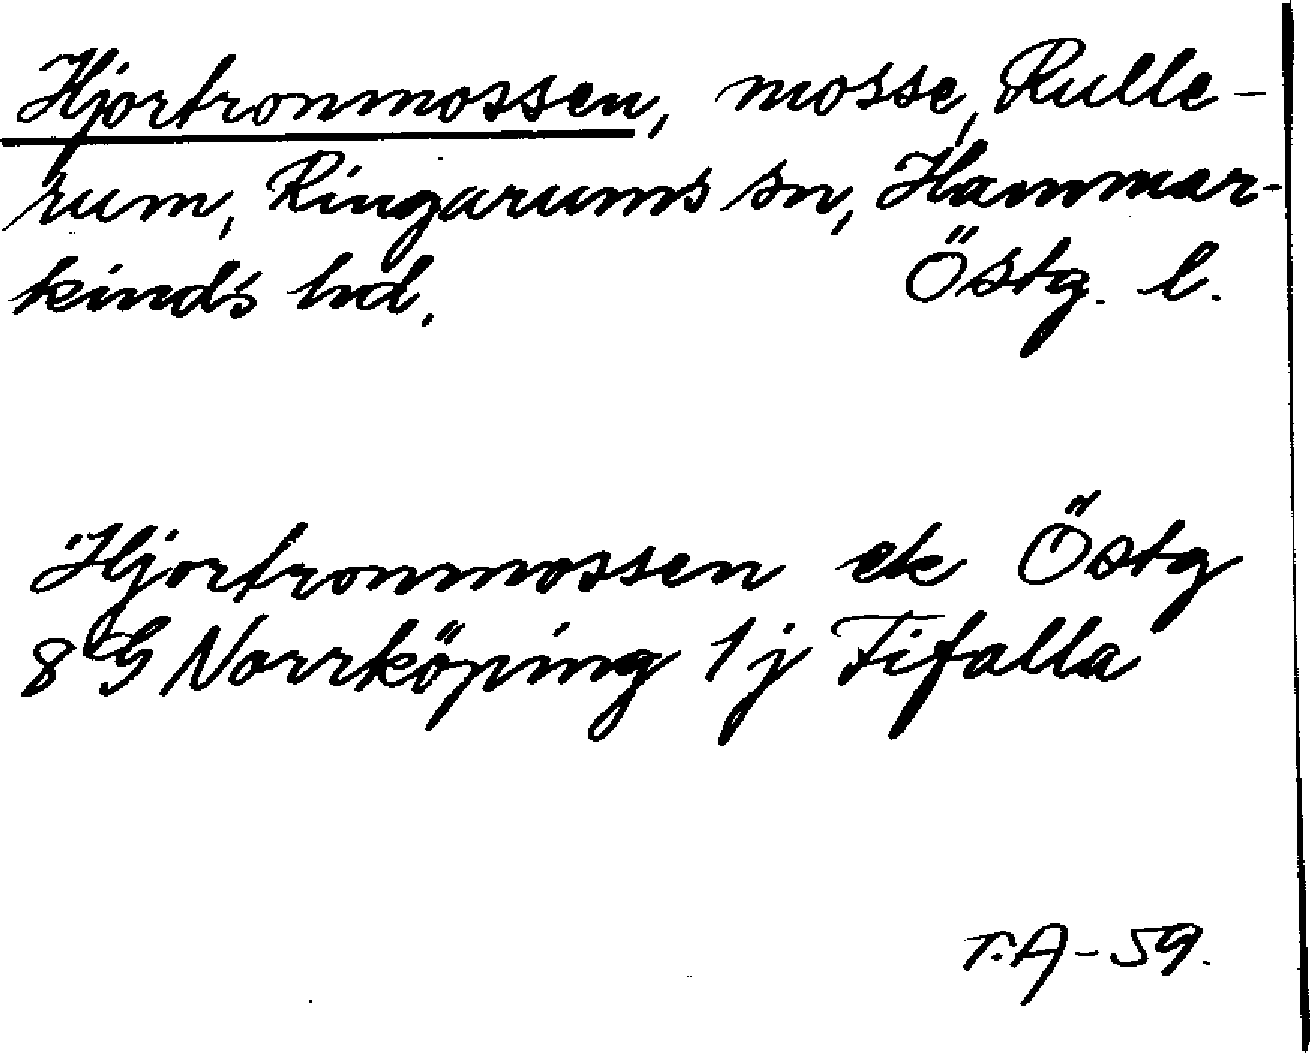 Hjortronmossen, mosse, Rulle-
rum, Ringarums sn, Hammar-
kinds hd. Östg. l.
Hjortronmossen ek Östg
8 G Norrköping 1 j Fifalla
T.A-59.